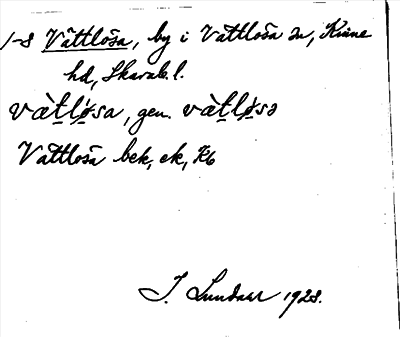 1-8 Vättlösa, by i Vättlösa sn, Kinne
hd, Skarab. l.
vàt̲lǿ̲sa, gen. vàt̲lǿ̲sə
Vättlösa bek, ek, Kb
J. Lundahl 1928.